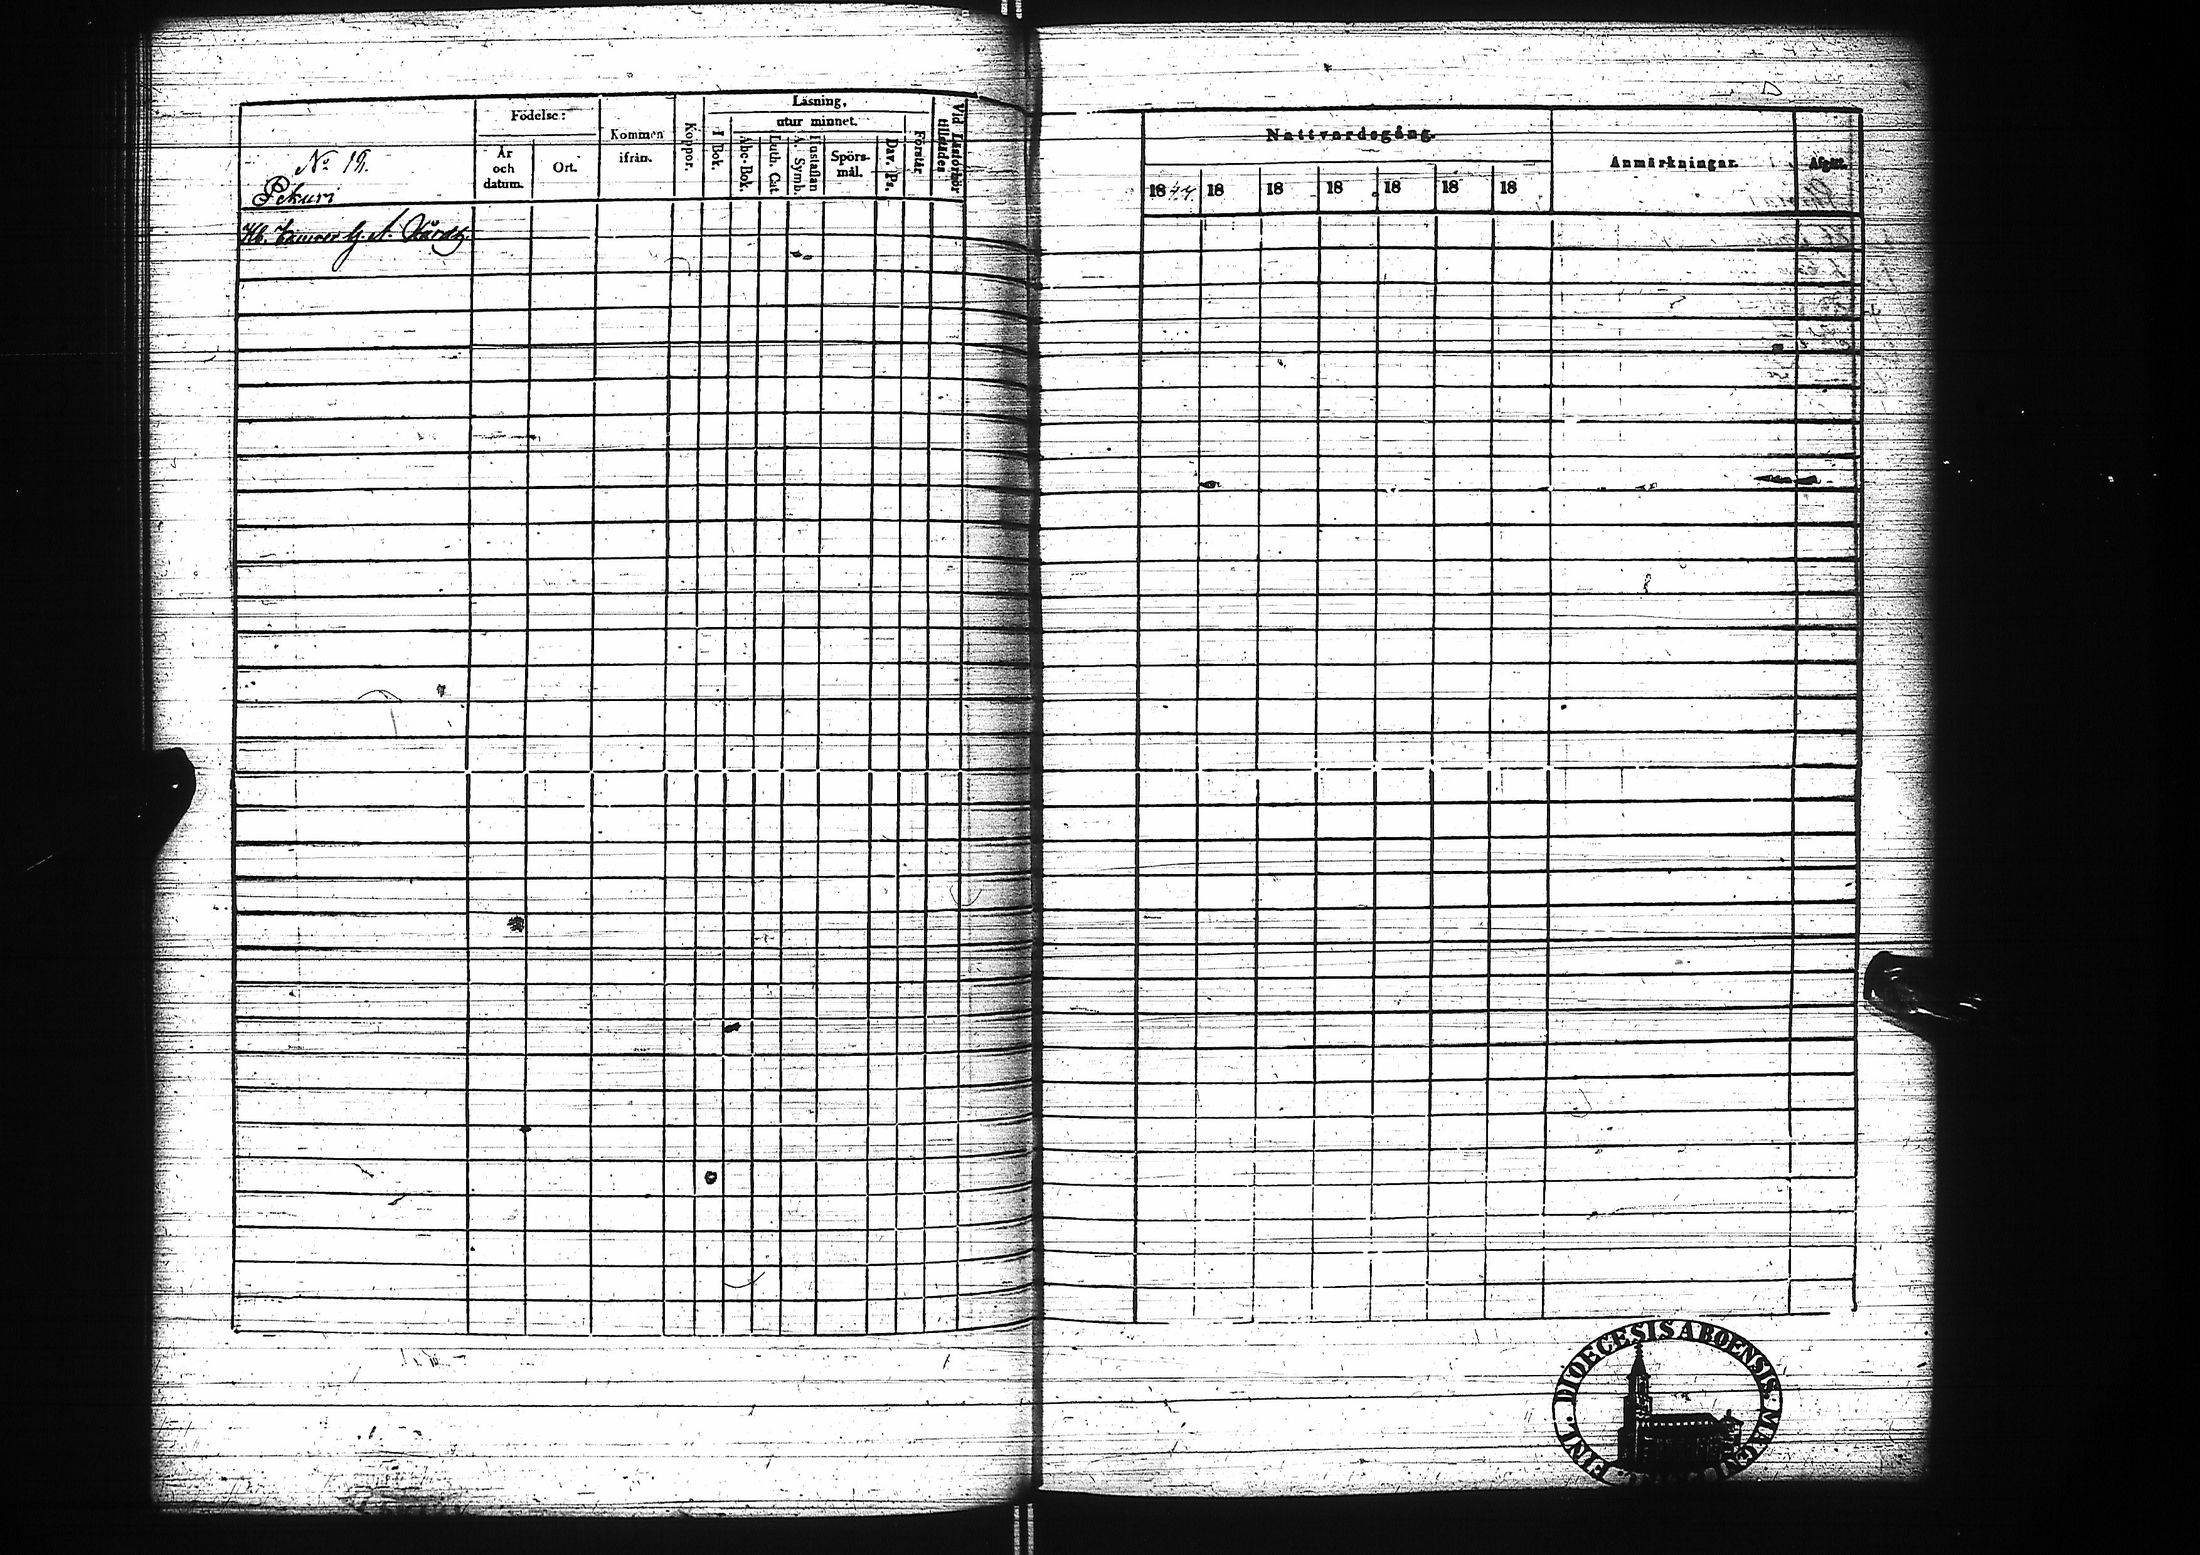 Födelse:
År och datum.
Ort.
Kommen ifrån.
Koppor.
Läsning,
I Bok.
utur minnet.
Abc-Bok.
Luth. Cat.
Hustaflan A. Symb.
Spörsmål.
Dav. Ps.
Förstår
Vid Läsförhör tillstädes
No 19.
Pekuri
Nattvardsgång.
1844 18 18 18 18 18 18
Anmärkningar.
Afgått.
DIOECESIS ABOENSIS